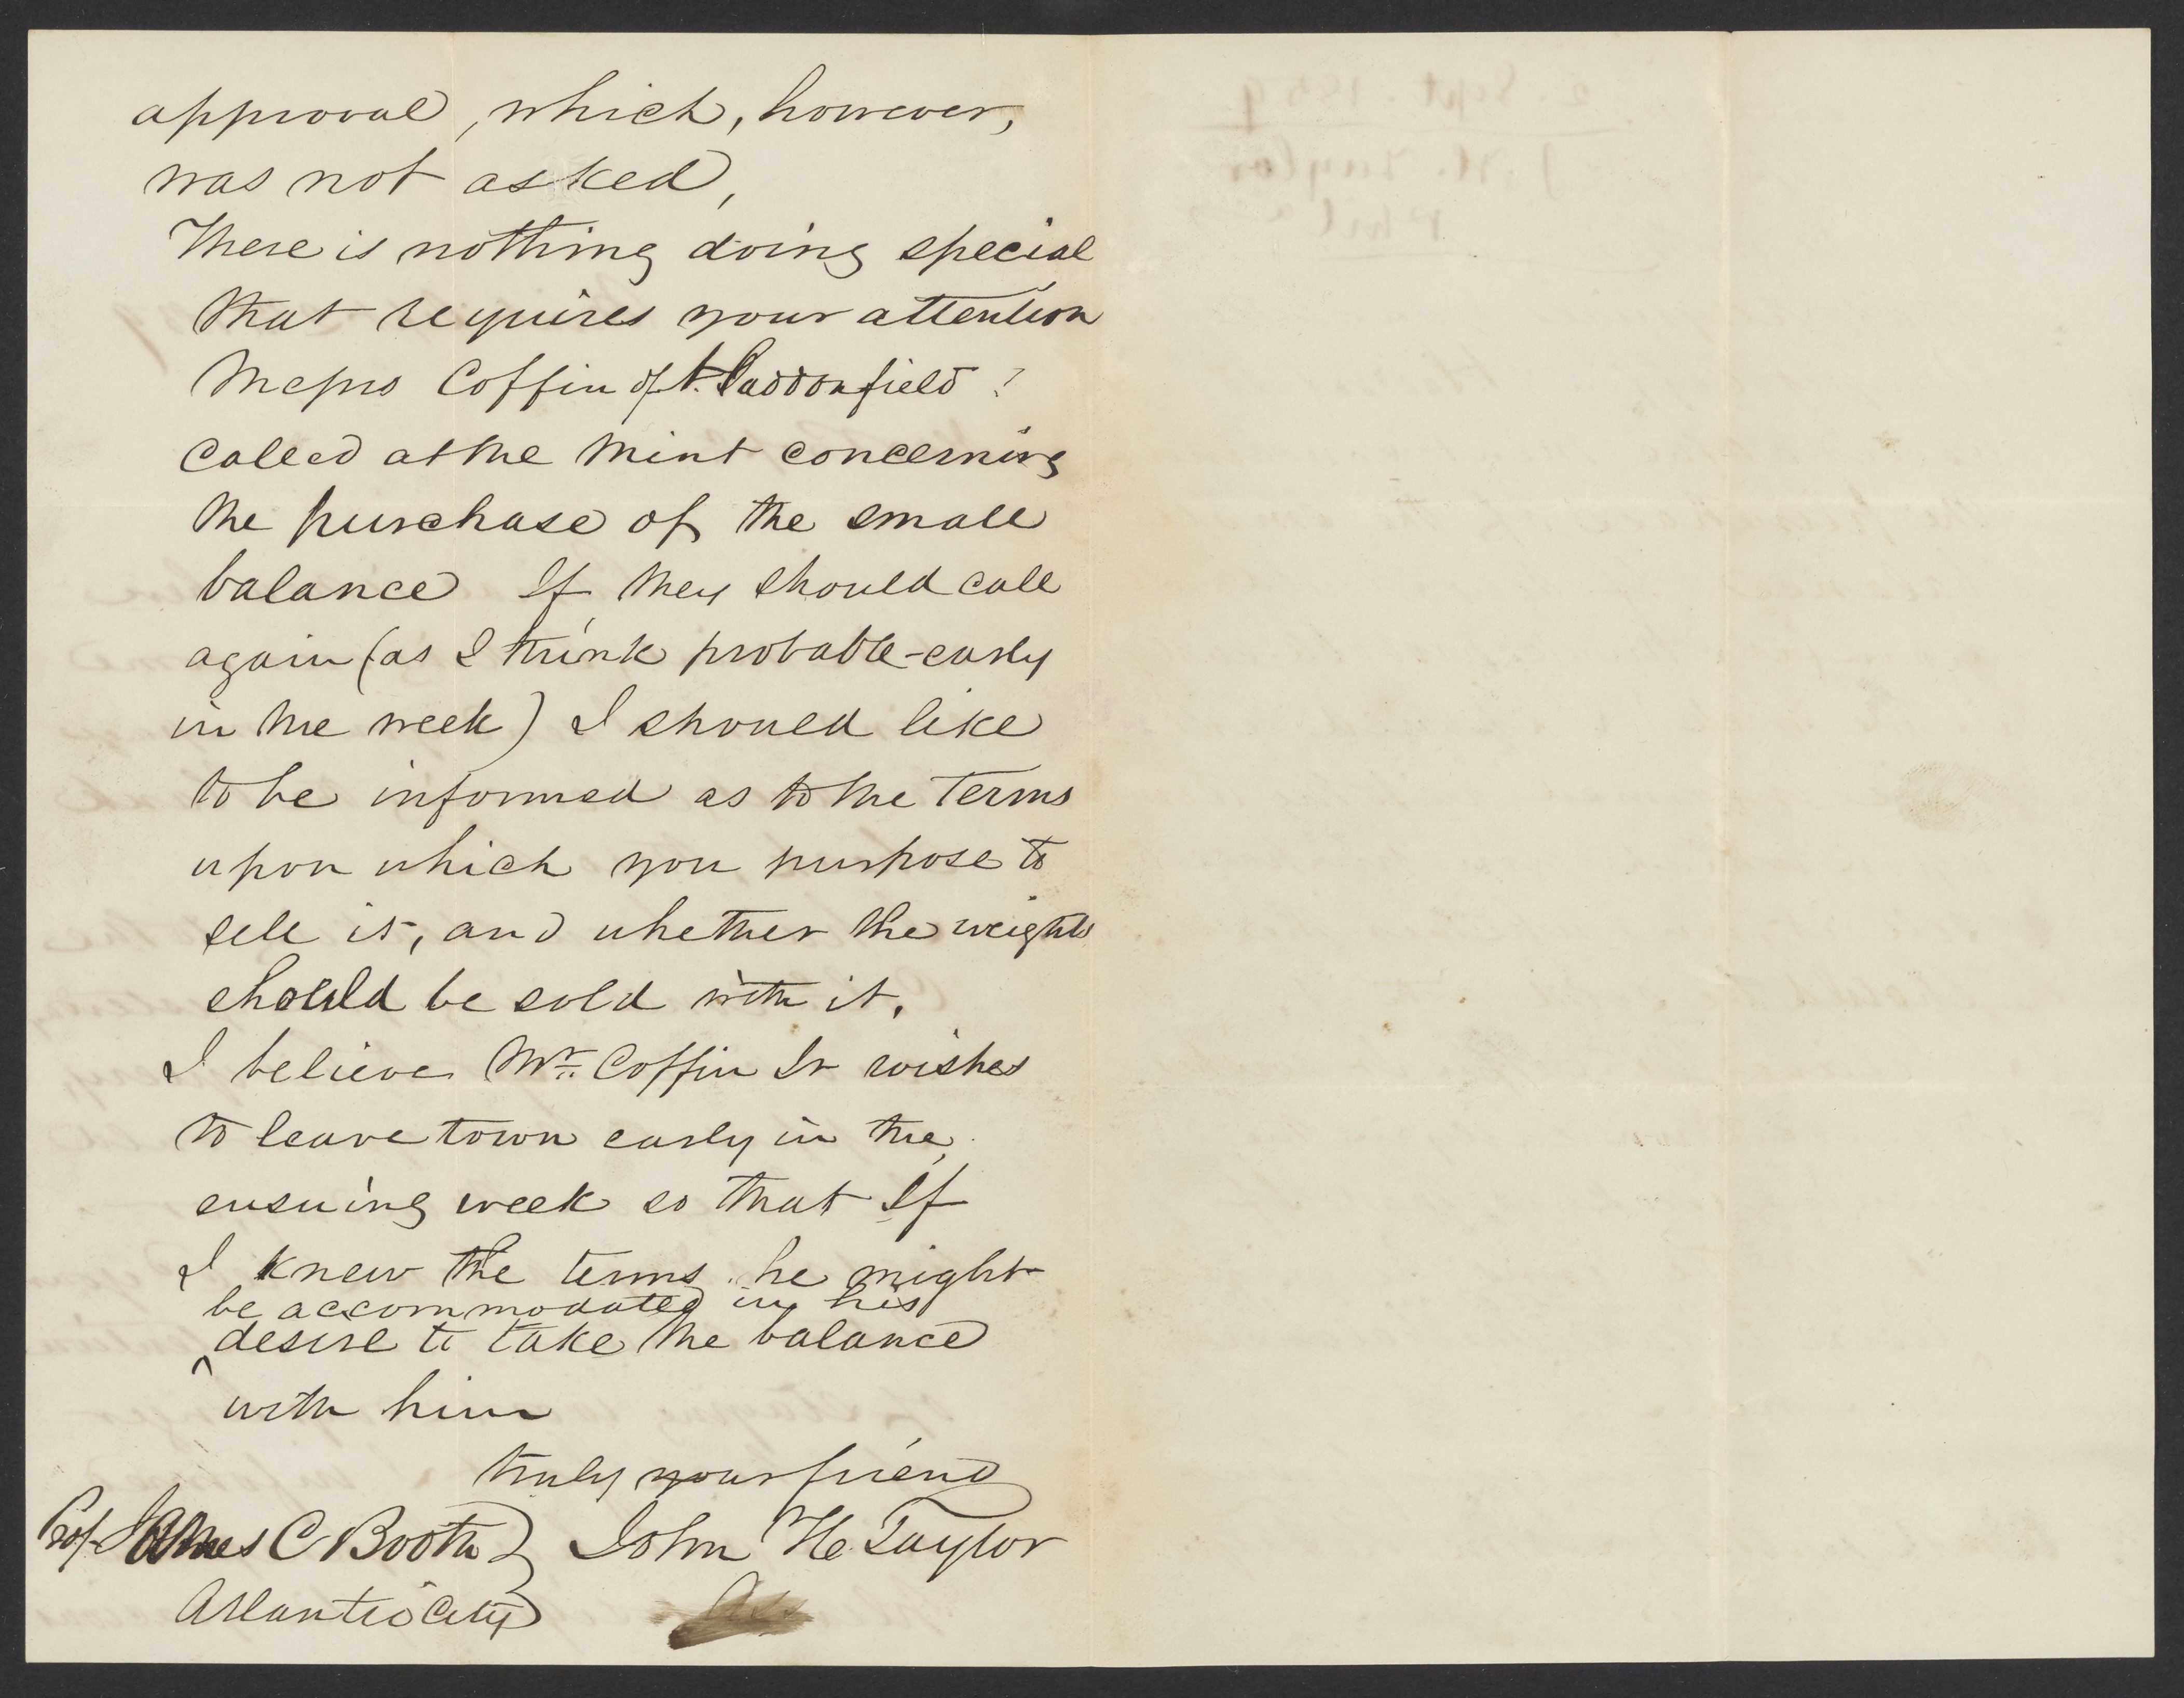 approval, which, however,
was not asked,
There is nothing doing special
that requires your attention
Messrs Coffin of Haddonfield?
called at the Mint concerning
the purchase of the small
balance If they should call
again (as I think probable-early
in the week) I should like
to be informed as to the terms
upon which you purpose to
sell it, and whether the weights
should be sold with it.
I believe Mr. Coffin Sr wishes
to leave town early in the
ensuing week so that If
I knew the terms he might
be accommodated in his
^ desire to take the balance
with him
truly your friend
Prof James C Booth } John H Taylor
Atlantic City
2. Sept. 1859
J. H. Taylor
Phil